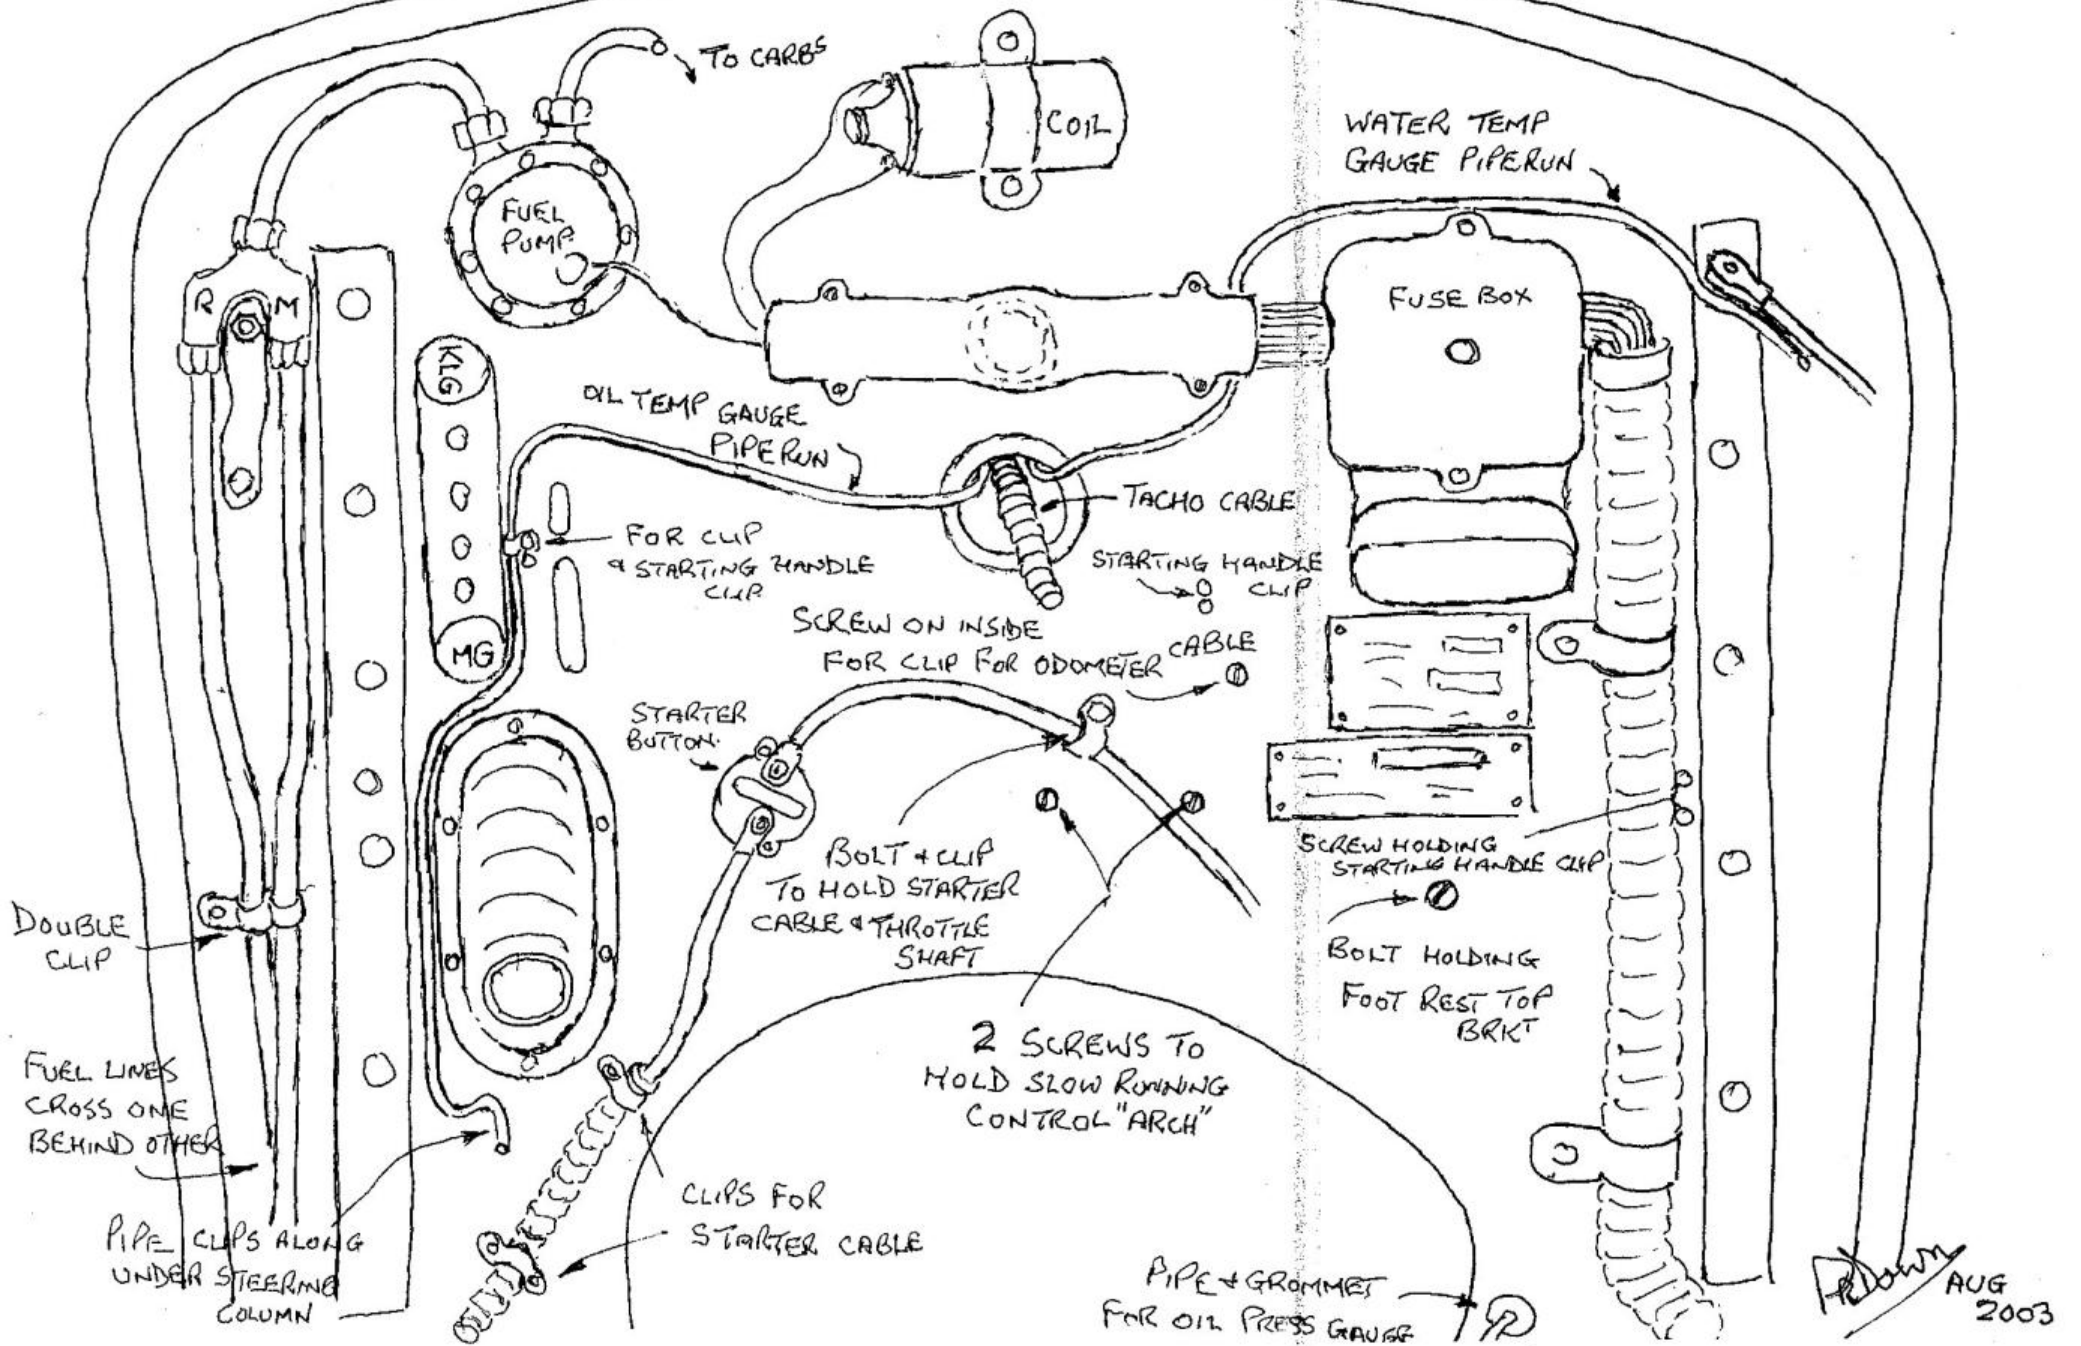 TO CARBS
COIL
WATER TEMP
GAUGE PIPERUN
FUEL
PUMP
R M
FUSE BOX
KLG
OIL TEMP GAUGE
PIPERUN
TACHO CABLE
FOR CLIP
& STARTING HANDLE
CLIP
STARTING HANDLE
CLIP
SCREW ON INSIDE
FOR CLIP FOR ODOMETER CABLE
MG
STARTER
BUTTON
BOLT & CLIP
TO HOLD STARTER
CABLE & THROTTLE
SHAFT
SCREW HOLDING
STARTING HANDLE CLIP
DOUBLE
CLIP
BOLT HOLDING
FOOT REST TOP
BRKT
2 SCREWS TO
HOLD SLOW RUNNING
CONTROL "ARCH"
FUEL LINES
CROSS ONE
BEHIND OTHER
CLIPS FOR
STARTER CABLE
PIPE CLIPS ALONG
UNDER STEERING
COLUMN
PIPE & GROMMET
FOR OIL PRESS GAUGE
AUG
2003